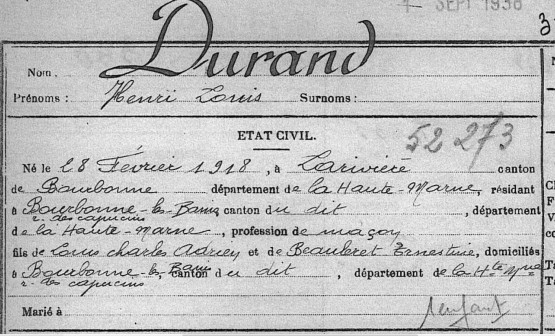 SEPT 1938
3
Durand
Nom.
Prénoms : Henri Louis Surnoms :
ETAT CIVIL.
52 273
Né le 28 Février 1918, à Larivière canton
de Bourbonne département de la Haute-Marne, résidant
à Bourbonne-les-Bains canton du dit, département
r. des capucins
de la Haute-Marne, profession de maçon
fils de Louis Charles Adrien et de Ernestine, domiciliés
à Bourbonne-les-Bains canton du dit, département de la Hte Mne
r. des capucins
Marié à